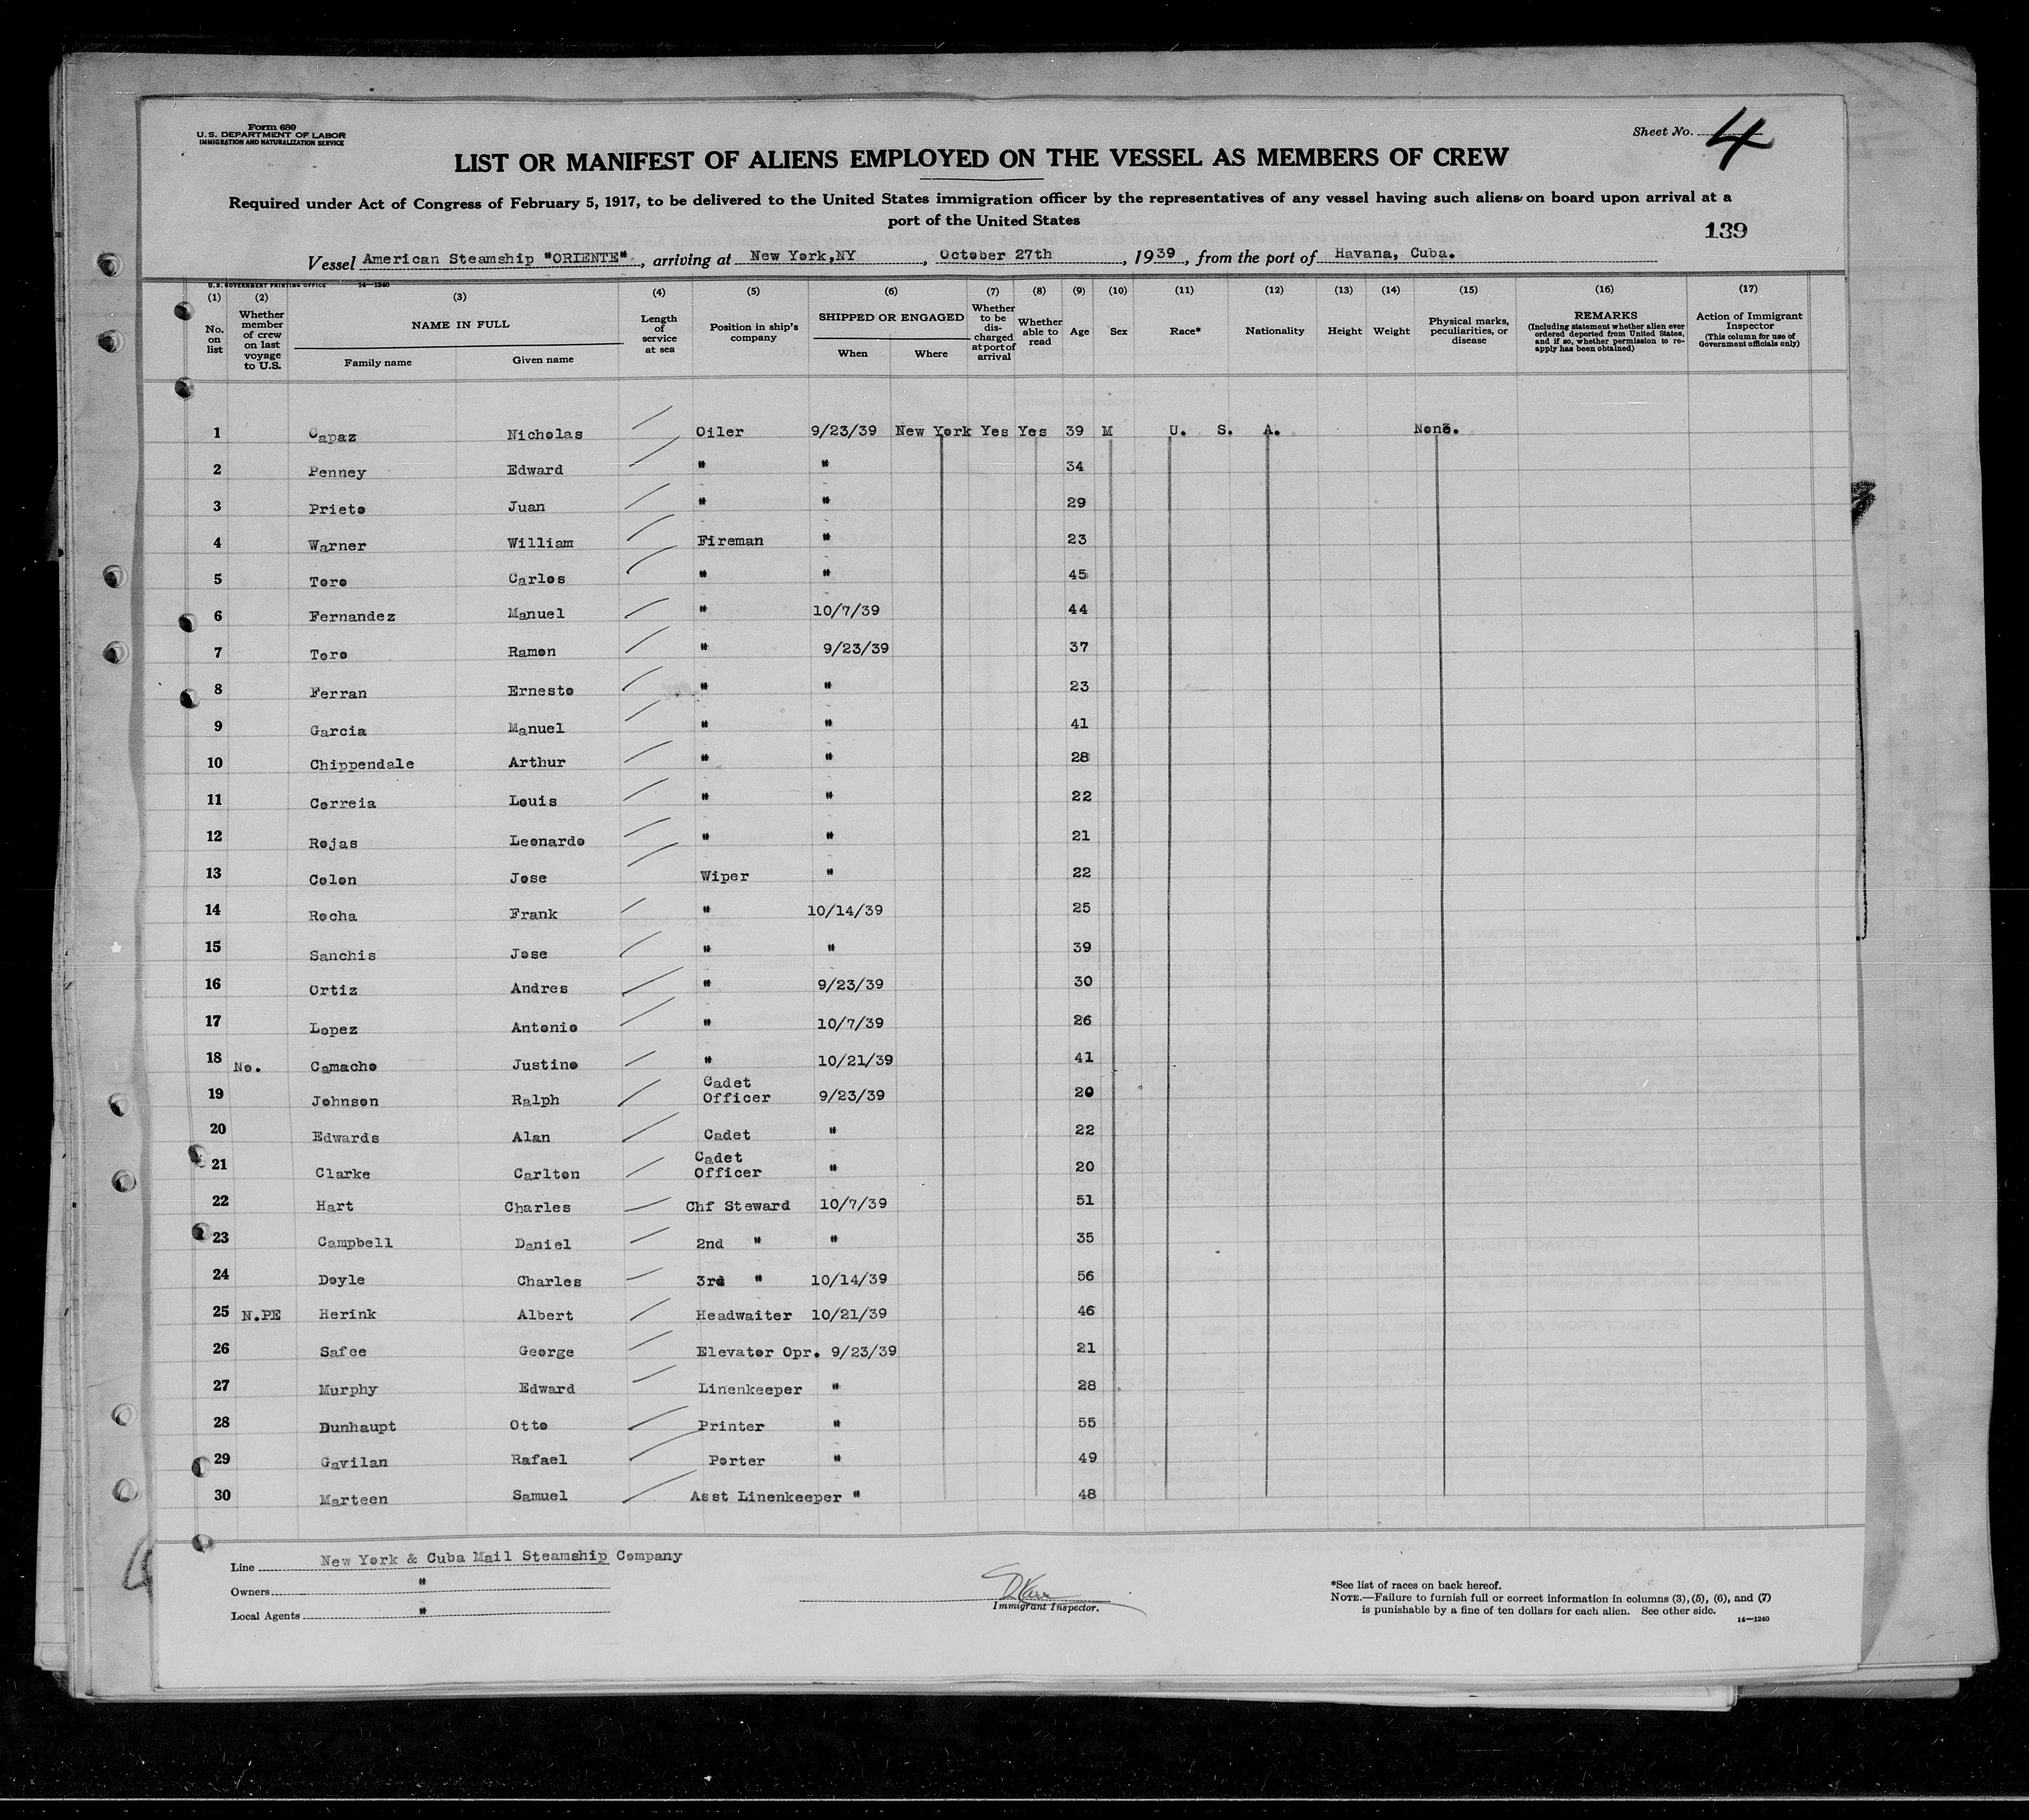 Form 680
U. S. DEPARTMENT OF LABOR
IMMIGRATION AND NATURALIZATION SERVICE
Sheet No. 4
LIST OR MANIFEST OF ALIENS EMPLOYED ON THE VESSEL AS MEMBERS OF CREW
Required under Act of Congress of February 5, 1917, to be delivered to the United States immigration officer by the representatives of any vessel having such aliens on board upon arrival at a
port of the United States
139
Vessel American Steamship "ORIENTE", arriving at New York,NY, October 27th, 1939, from the port of Havana, Cuba.
U. S. GOVERNMENT PRINTING OFFICE 14—1240
(1) (2) (3) (4) (5) (6) (7) (8) (9) (10) (11) (12) (13) (14) (15) (16) (17)
No. on list
Whether member of crew on last voyage to U.S.
NAME IN FULL
Family name Given name
Length of service at sea
Position in ship's company
SHIPPED OR ENGAGED
When Where
Whether to be discharged at port of arrival
Whether able to read
Age
Sex
Race*
Nationality
Height
Weight
Physical marks, peculiarities, or disease
REMARKS
(Including statement whether alien ever ordered deported from United States, and if so, whether permission to reapply has been obtained)
Action of Immigrant Inspector
(This column for use of Government officials only)
1 Capaz Nicholas Oiler 9/23/39 New York Yes Yes 39 M U. S. A. None.
2 Penney Edward " " 34
3 Prieto Juan " " 29
4 Warner William Fireman " 23
5 Toro Carlos " " 45
6 Fernandez Manuel " 10/7/39 44
7 Toro Ramon " 9/23/39 37
8 Ferran Ernesto " " 23
9 Garcia Manuel " " 41
10 Chippendale Arthur " " 28
11 Correia Louis " " 22
12 Rojas Leonardo " " 21
13 Colon Jose Wiper " 22
14 Rocha Frank " 10/14/39 25
15 Sanchis Jose " " 39
16 Ortiz Andres " 9/23/39 30
17 Lopez Antonio " 10/7/39 26
18 No. Camacho Justino " 10/21/39 41
19 Johnson Ralph Cadet Officer 9/23/39 20
20 Edwards Alan Cadet " 22
21 Clarke Carlton Cadet Officer " 20
22 Hart Charles Chf Steward 10/7/39 51
23 Campbell Daniel 2nd " " 35
24 Doyle Charles 3rd " 10/14/39 56
25 N.PE Herink Albert Headwaiter 10/21/39 46
26 Safee George Elevator Opr. 9/23/39 21
27 Murphy Edward Linenkeeper " 28
28 Dunhaupt Otto Printer " 55
29 Gavilan Rafael Porter " 49
30 Marteen Samuel Asst Linenkeeper " 48
Line New York & Cuba Mail Steamship Company
Owners "
Local Agents "
Immigrant Inspector.
*See list of races on back hereof.
NOTE.—Failure to furnish full or correct information in columns (3), (5), (6), and (7)
is punishable by a fine of ten dollars for each alien. See other side.
14—1240